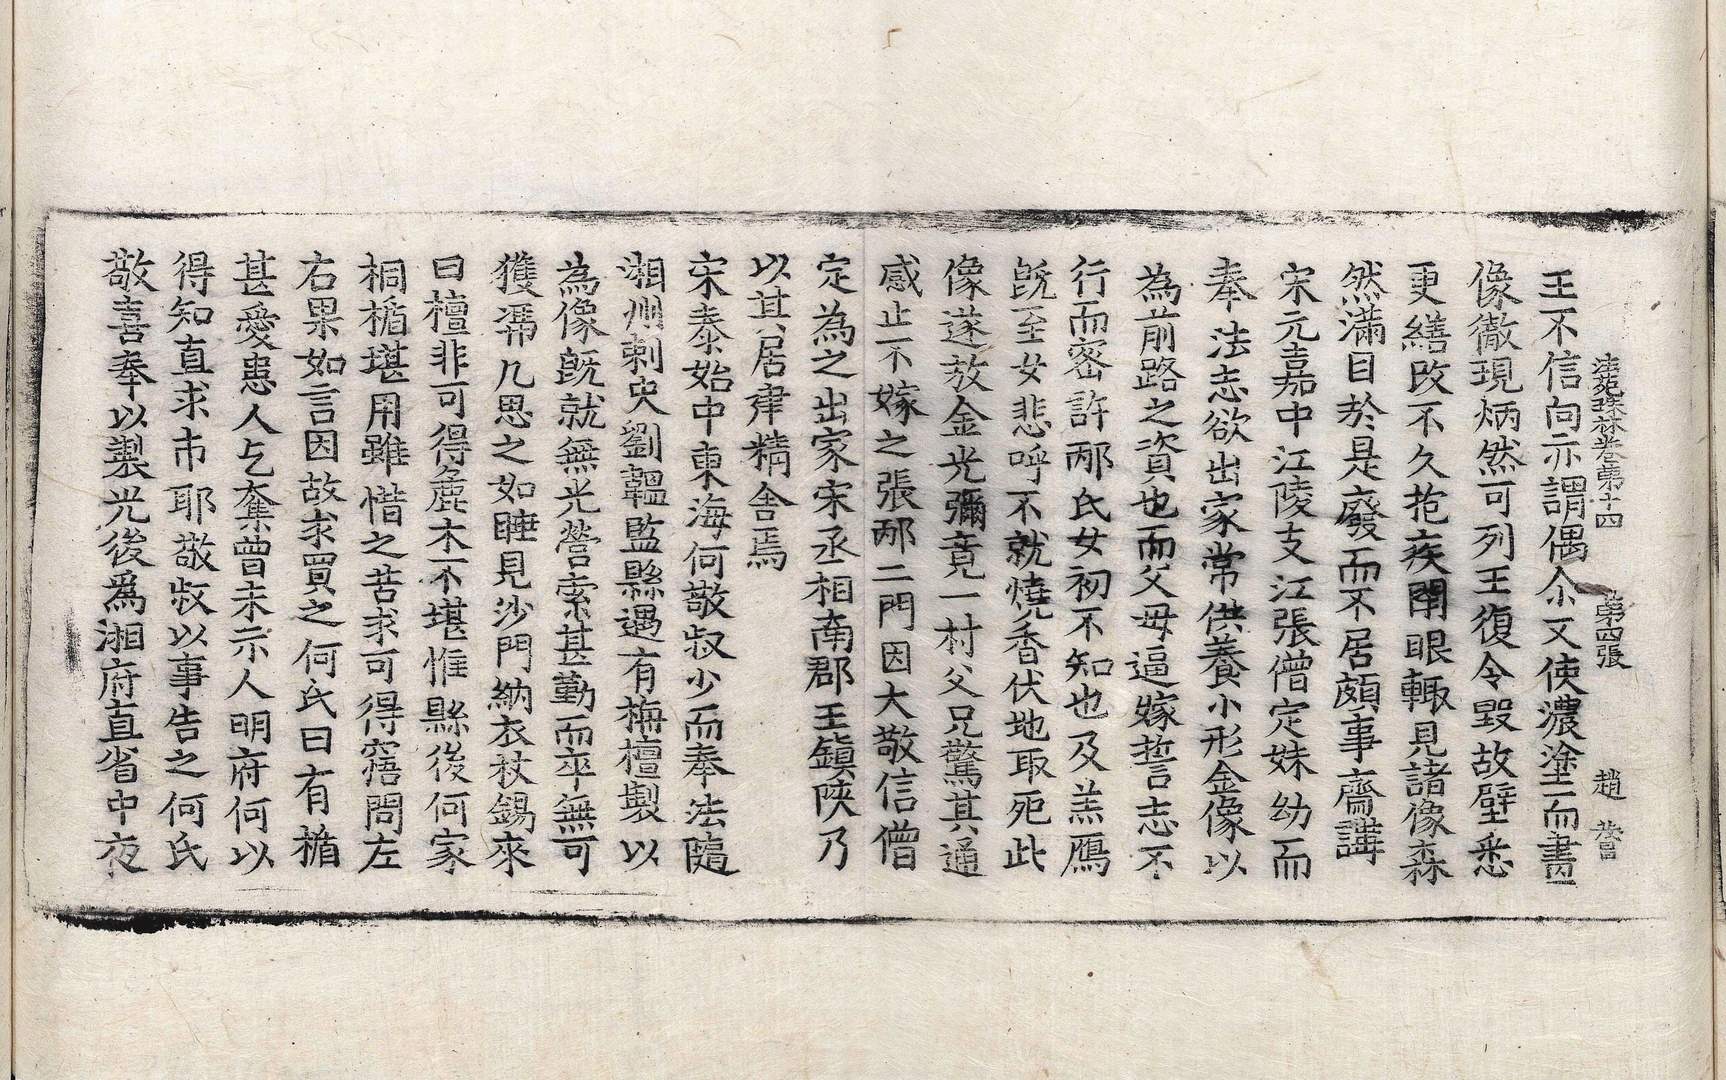 法苑珠林卷第十四　第四張　趙
王不信向示謂偶尒又使濃塗而畫
像徹現炳然可列王復令毀故壁悉
更繕改不久抱疾閉眼輙見諸像森
然滿目於是廢而不居頗事齋講
宋元嘉中江陵支江張僧定妹幼而
奉法志欲出家常供養小形金像以
為前路之資也而父母逼嫁誓志不
行而密許邴氏女初不知也及羔鴈
旣至女悲呼不就燒香伏地取死此
像遂放金光彌竟一村父兄驚其通
感止不嫁之張邴二門因大敬信僧
定為之出家宋丞相南郡王鎭陝乃
以其居建精舍焉
宋泰始中東海何敬叔少而奉法隨
湘州剌史劉韞監縣遇有栴檀製以
為像旣就無光營索甚勤而卒無可
獲馮几思之如睡見沙門納衣杖錫來
曰檀非可得麁木不堪惟縣後何家
桐楯堪用雖惜之苦求可得寤問左
右果如言因故求買之何氏曰有楯
甚愛患人乞奪曾未示人明府何以
得知直求市耶敬叔以事告之何氏
敬喜奉以製光後爲湘府直省中夜